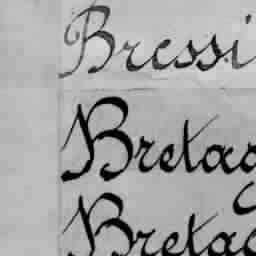 Bressi
Bretag
Bretag